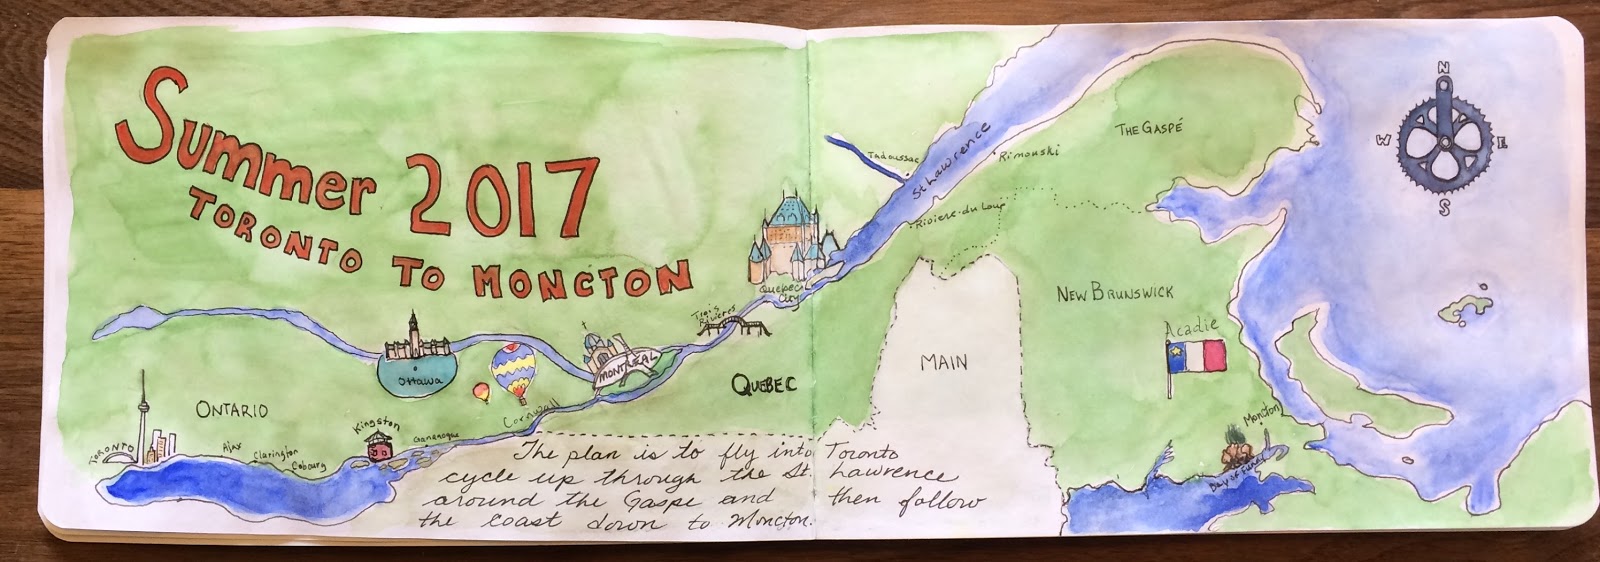 Summer 2017
TORONTO TO MONCTON
N
W E
S
THE GASPÉ
Tadoussac
St Lawrence
Rimouski
Riviere-du Loup
Quebec
City
Trois
Rivieres
NEW BRUNSWICK
Acadie
MAIN
MONTREAL
Ottawa
QUEBEC
ONTARIO
Cornwall
Kingston
Gananoque
TORONTO
Ajax
Clarington
Cobourg
Moncton
Bay of Fundy
The plan is to fly into Toronto
cycle up through the St. Lawrence
around the Gaspe and then follow
the coast down to Moncton.